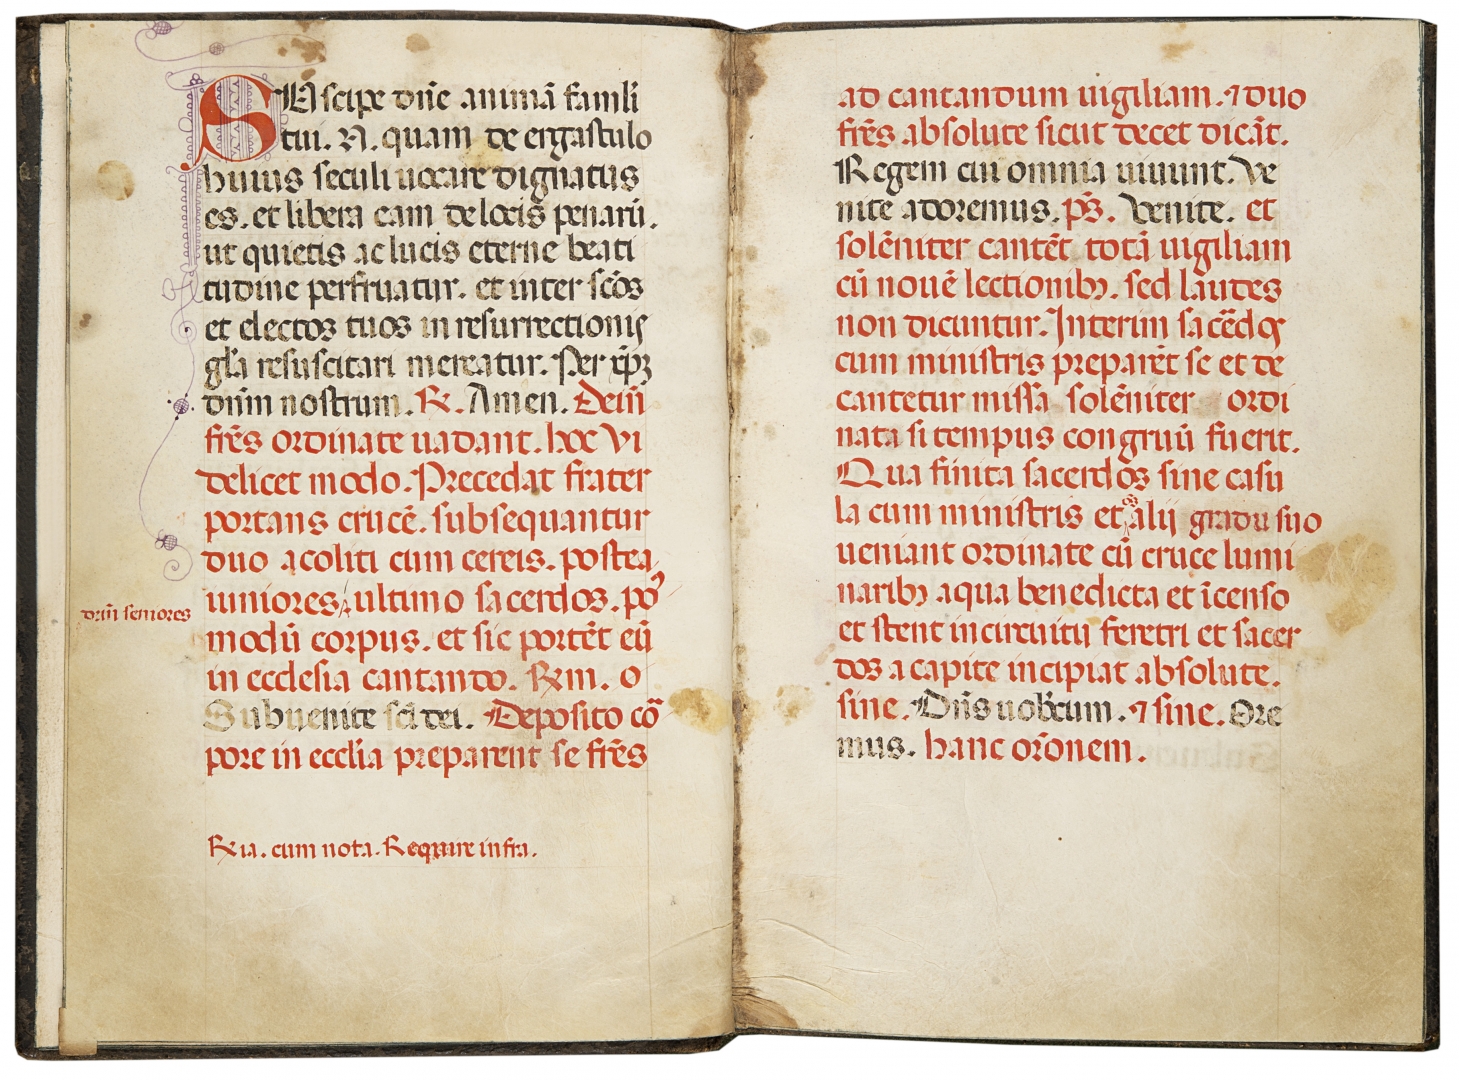 SUscipe dn̄e animā famuli
tui. N. quam de ergastulo
huius seculi uocare dignatus
es. et libera eam de locis penarū.
ut quietis ac lucis eterne beati
tudine perfruatur. et inter scōs
et electos tuos in resurrectionis
gl̄a resuscitari mereatur. Per xp̄ꝫ
dn̄m nostrum. ℟. Amen. Dein̄
fr̄es ordinate uadant. hoc vi
delicet modo. Precedat frater
portans crucē. subsequantur
duo acoliti cum cereis. postea
iuniores, ultimo sacerdos. pꝰ
dein̄ seniores
modū corpus. et sic portēt eū
in ecclesia cantando. ℟m. o
Subuenite sc̄i dei. Deposito cō
pore in ecclīa preparent se fr̄es
℟ia. cum nota. Require infra.
ad cantandum uigiliam. ⁊ duo
fr̄es absolute sicut decet dicāt.
Regem cui omnia uiuunt. Ve
nite adoremus. pˢ̄. Venite. et
solēniter cantēt totā uigiliam
cū nouē lectionibꝫ. sed laudes
non dicuntur. Interim sacēdos
cum ministris preparēt se et de
cantetur missa solēniter ordi
nata si tempus congruū fuerit.
Qua finita sacerdos sine casu
la cum ministris et alij gradu suo
ueniant ordinate cū cruce lumi
naribꝫ aqua benedicta et īcenso
et stent in circuitu feretri et sacer
dos a capite incipiat absolute.
sine. Dn̄s uobcum. ⁊ sine. Ore
mus. hanc orōnem.